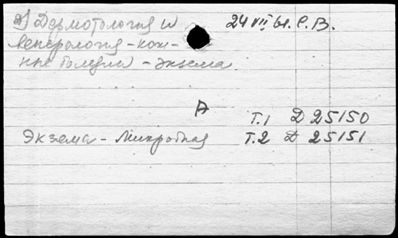 2) Дерматология и 24 VII 61. С.В.
венерология - кож-
ные болезни - экзема
А
Т.1 Д 25150
Экзема - микробная Т.2 Д 25151